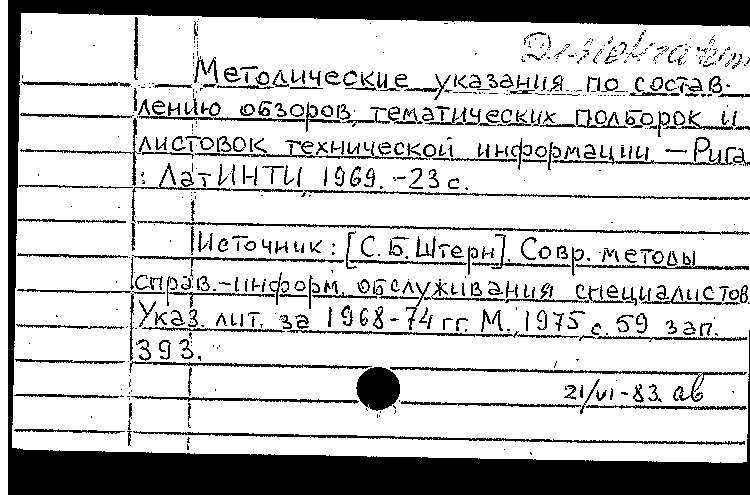 Методические указания по состав-
лению обзоров, тематических подборок и
листовок технической информации — Рига
: ЛатИНТИ, 1969. -23 с.
Источник: [С.Б. Штерн]. Совр. методы
справ.-информ. обслуживания специалистов
Указ. лит. за 1968-74 гг. М., 1975, с. 59 зап.
393.
21/VI-83. ав